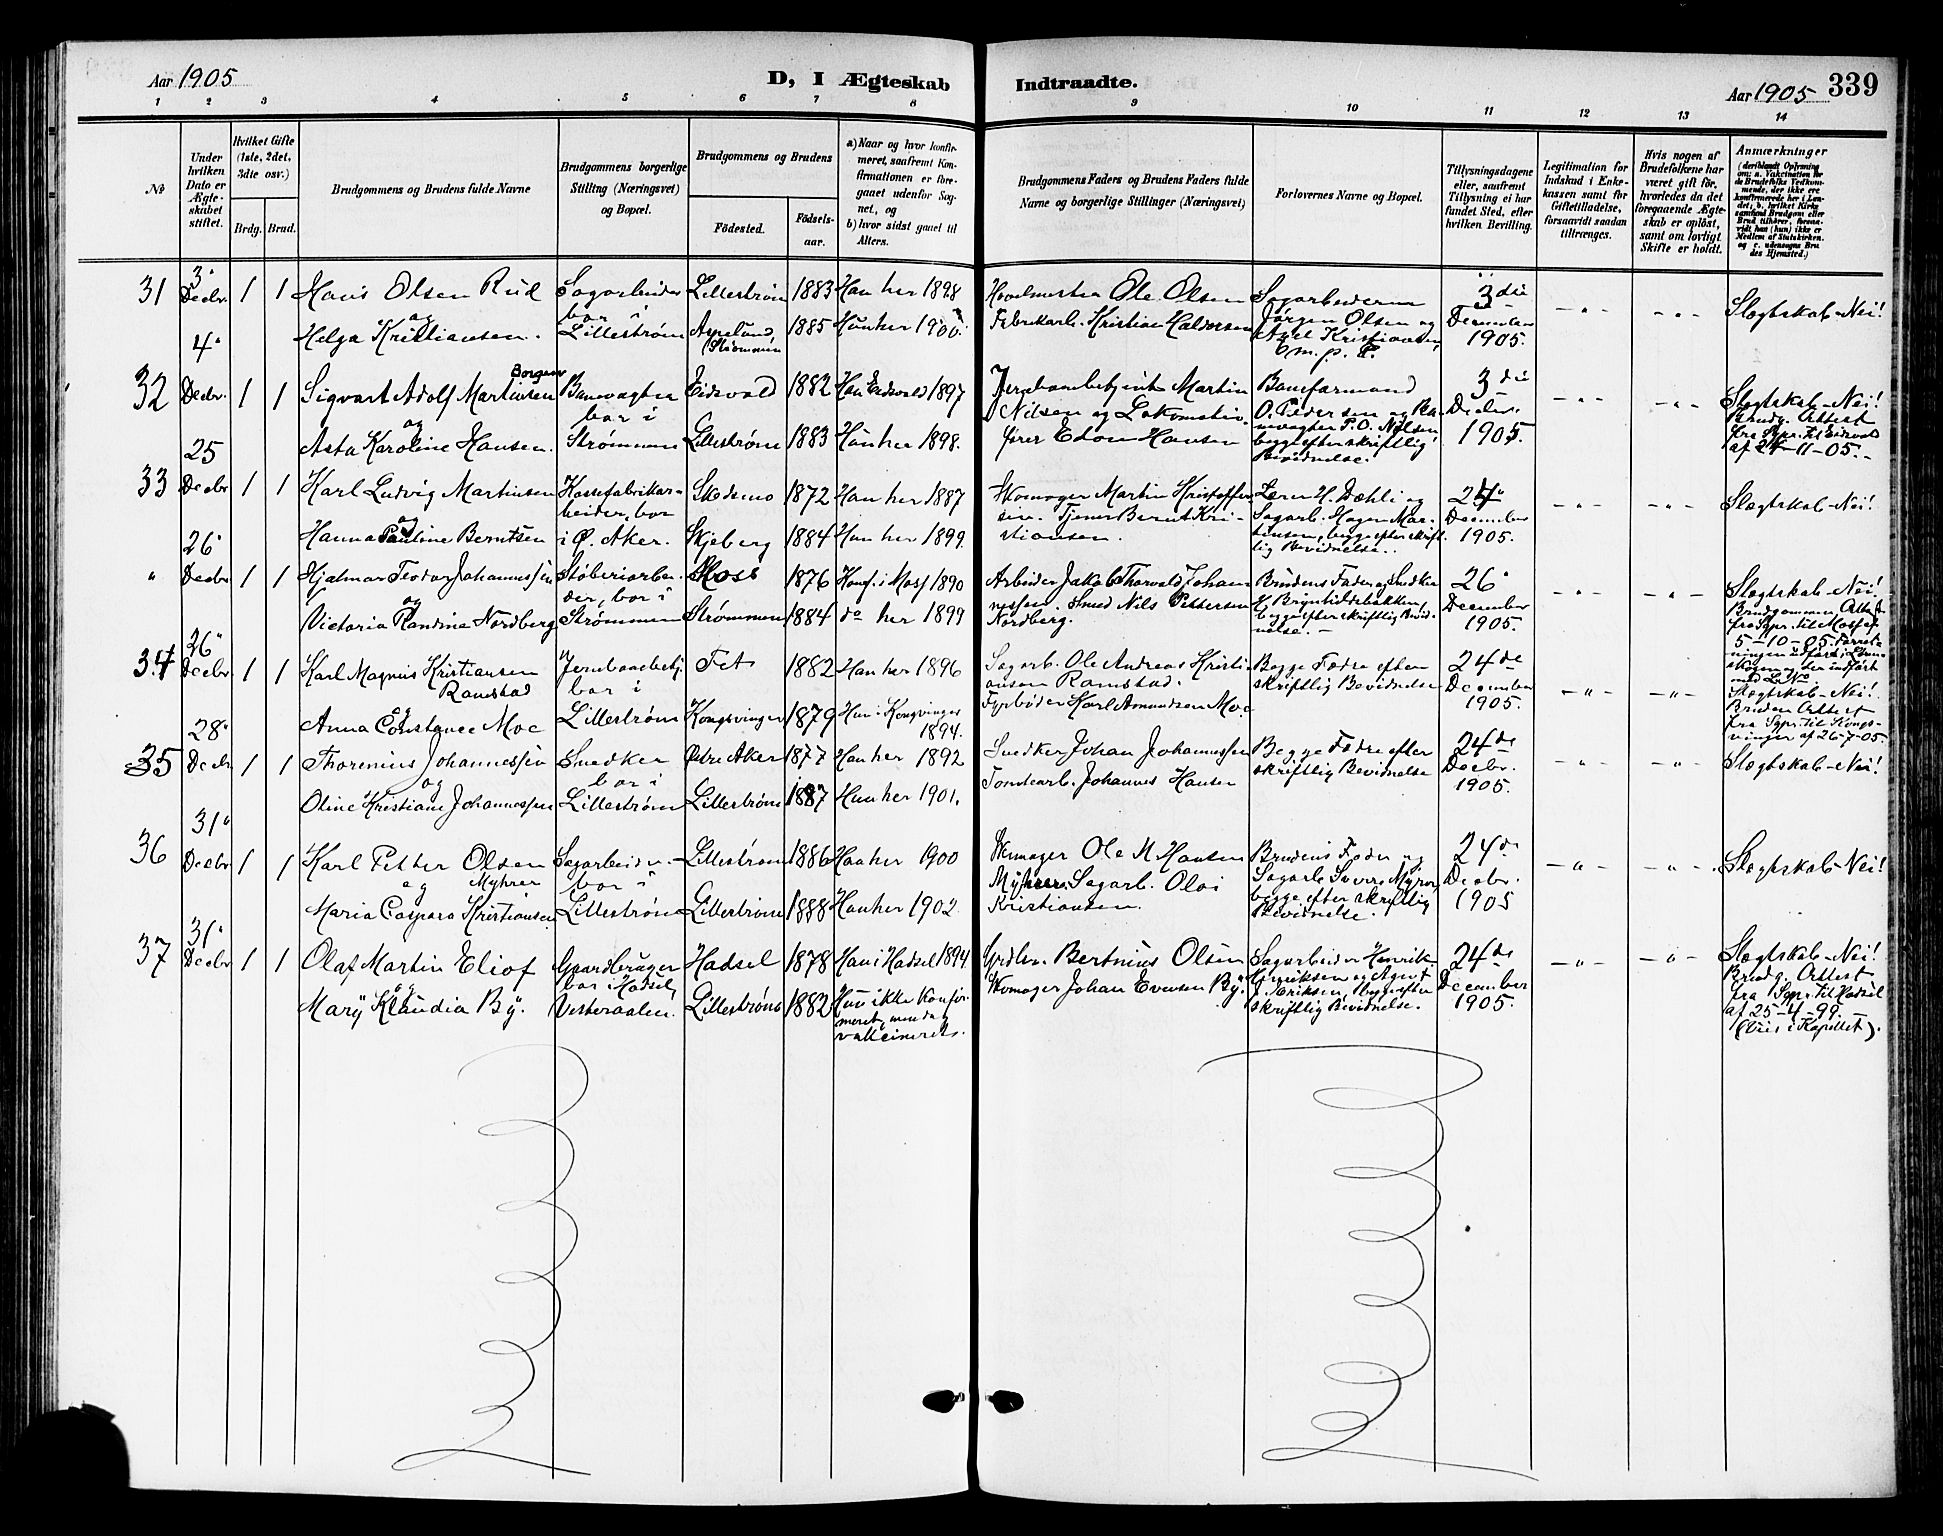 Aar 1905
D, I Ægteskab
Indtraadte.
Aar 1905
339
1 2 3 4 5 6 7 8 9 10 11 12 13 14
No
Under hvilken Dato er Ægteskabet stiftet.
Hvilket Gifte (1ste, 2det, 3die osv.)
Brdg. Brud.
Brudgommens og Brudens fulde Navne
Brudgommens borgerlige Stilling (Næringsvei) og Bopæl.
Brudgommens og Brudens
Fødested.
Fødselsaar.
a) Naar og hvor konfirmeret, saafremt Konfirmationen er foregaaet udenfor Sognet, og
b) hvor sidst gaaet til Alters.
Brudgommens Faders og Brudens Faders fulde Navne og borgerlige Stillinger (Næringsvei)
Forlovernes Navne og Bopæl.
Tillysningsdagene eller, saafremt Tillysning ei har fundet Sted, efter hvilken Bevilling.
Legitimation for Indskud i Enkekassen samt for Giftetilladelse, forsaavidt saadan tiltrænges.
Hvis nogen af Brudefolkene har været gift før, hvorledes da det foregaaende Ægteskab er opløst, samt om lovligt Skifte er holdt.
Anmærkninger
31 3" Decbr. 1 1 Hans Olsen Rud Sagarbeider Lillestrøm 1883 Han her 1898 Ole Olsen Sagarbeiderne 3die Slægtskab - Nei!
og bor i Jørgen Olsen og December
Helga Kristiansen. Lillestrøm 1885 Hun her 1900. Fabrikarb. Kristian Halvorsen Axel Kristiansen 1905.
32 4" Decbr. 1 1 Sigvart Adolf Martinsen Borgen Banevogter Eidsvold 1882 Han Eidsvold 1897 Jernbanebetjent Martin Baneformand 3die Slægtskab - Nei!
og bor i Nilsen og Lokomotiv- O. Pedersen og Ba- Decbr. Brudg. Attest
Asta Karoline Hansen. Strømmen Lillestrøm 1883 Hun her 1898. fører Edvin Hansen nevogter P. O. Nilsen, 1905. fra Spr. til Eidsvold
begge efter skriftlig af 24-11-05.
Bevidnelse.
33 25 Decbr 1 1 Karl Ludvig Martinsen Kassefabrikar- Skedsmo 1872 Han her 1887 Skomager Martin Kristoffer- Lærer H. Dæhli og 24" Slægtskab - Nei!
og beider, bor sen. Tjener Bernt Kri- Sagarb. Hagen Mar- December
Hanna Pauline Berntsen i Ø. Aker. Skjeberg 1884 Hun her 1899. stiansen. tinsen, begge efter skrift- 1905.
lig Bevidnelse.
" 26" Decbr. 1 1 Hjalmar Teodor Johannessen Støberiarbei- Moss 1876 Konf. i Moss 1890 Arbeider Jakob Thorvald Johan- Brudens Fader og Snedker 26" Slægtskab - Nei!
og der, bor i nessen. Smed Nils Pettersen H. Brynhildsbakken, December Brudgommens Attest
Victoria Randine Nordberg Strømmen Strømmen 1884 do her 1899 Nordberg. begge efter skriftlig Bevid- 1905. fra Spr. til Moss af
nelse. 5-10-05.
34 26" Decbr 1 1 Karl Magnus Kristiansen Jernbanebetj. Fet 1882 Han her 1896 Sagarb. Ole Andreas Kristi- Begge Fædre efter 24de Slægtskab - Nei!
Ramstad bor i ansen Ramstad. skriftlig Bevidnelse December Bruden Attest
og Fyrbøder Karl Amundsen Moe 1905. fra Spr. til Kongs-
Anna Constance Moe Lillestrøm Kongsvinger 1879 Hun i Kongsvinger 1894. vinger af 26-7-05.
35 28" Decbr. 1 1 Thorenius Johannessen Snedker Østre Aker 1877 Han her 1892 Snedker Johan Johannessen Begge Fædre efter 24de Slægtskab - Nei!
og bor i Tomtearb. Johannes Hansen skriftlig Bevidnelse Decbr.
Oline Kristiane Johannessen Lillestrøm Lillestrøm 1887 Hun her 1901. 1905.
36 31" Decbr 1 1 Karl Petter Olsen Sagarbeider Lillestrøm 1886 Han her 1900 Skomager Ole M Hansen Brudens Fader og 24de Slægtskab - Nei!
og Myhrer bor i Myhrer. Sagarb. Olai Sagarb. Myrer, Decbr.
Maria Caspara Kristiansen Lillestrøm Lillestrøm 1888 Hun her 1902. Kristiansen. begge efter skriftlig 1905
Bevidnelse.
37 31" Decbr 1 1 Olaf Martin Eliof Gaardbruger Hadsel 1878 Han i Hadsel 1894 Grdbr. Bertnius Olsen Sagarbeider Henrik 24de Slægtskab - Nei!
og bor i Hadsel, Skomager Johan Evensen By. Henriksen og Brudg. Attest
Mary Klaudia By. Vesteraalen. Lillestrøm 1882 Hun ikke konfir- Eriksen, begge efter December fra Spr. til Hadsel
meret, men dog skriftlig Bevidnelse. 1905. af 25-4-99.
vaccineret. (Viet i Kapellet).